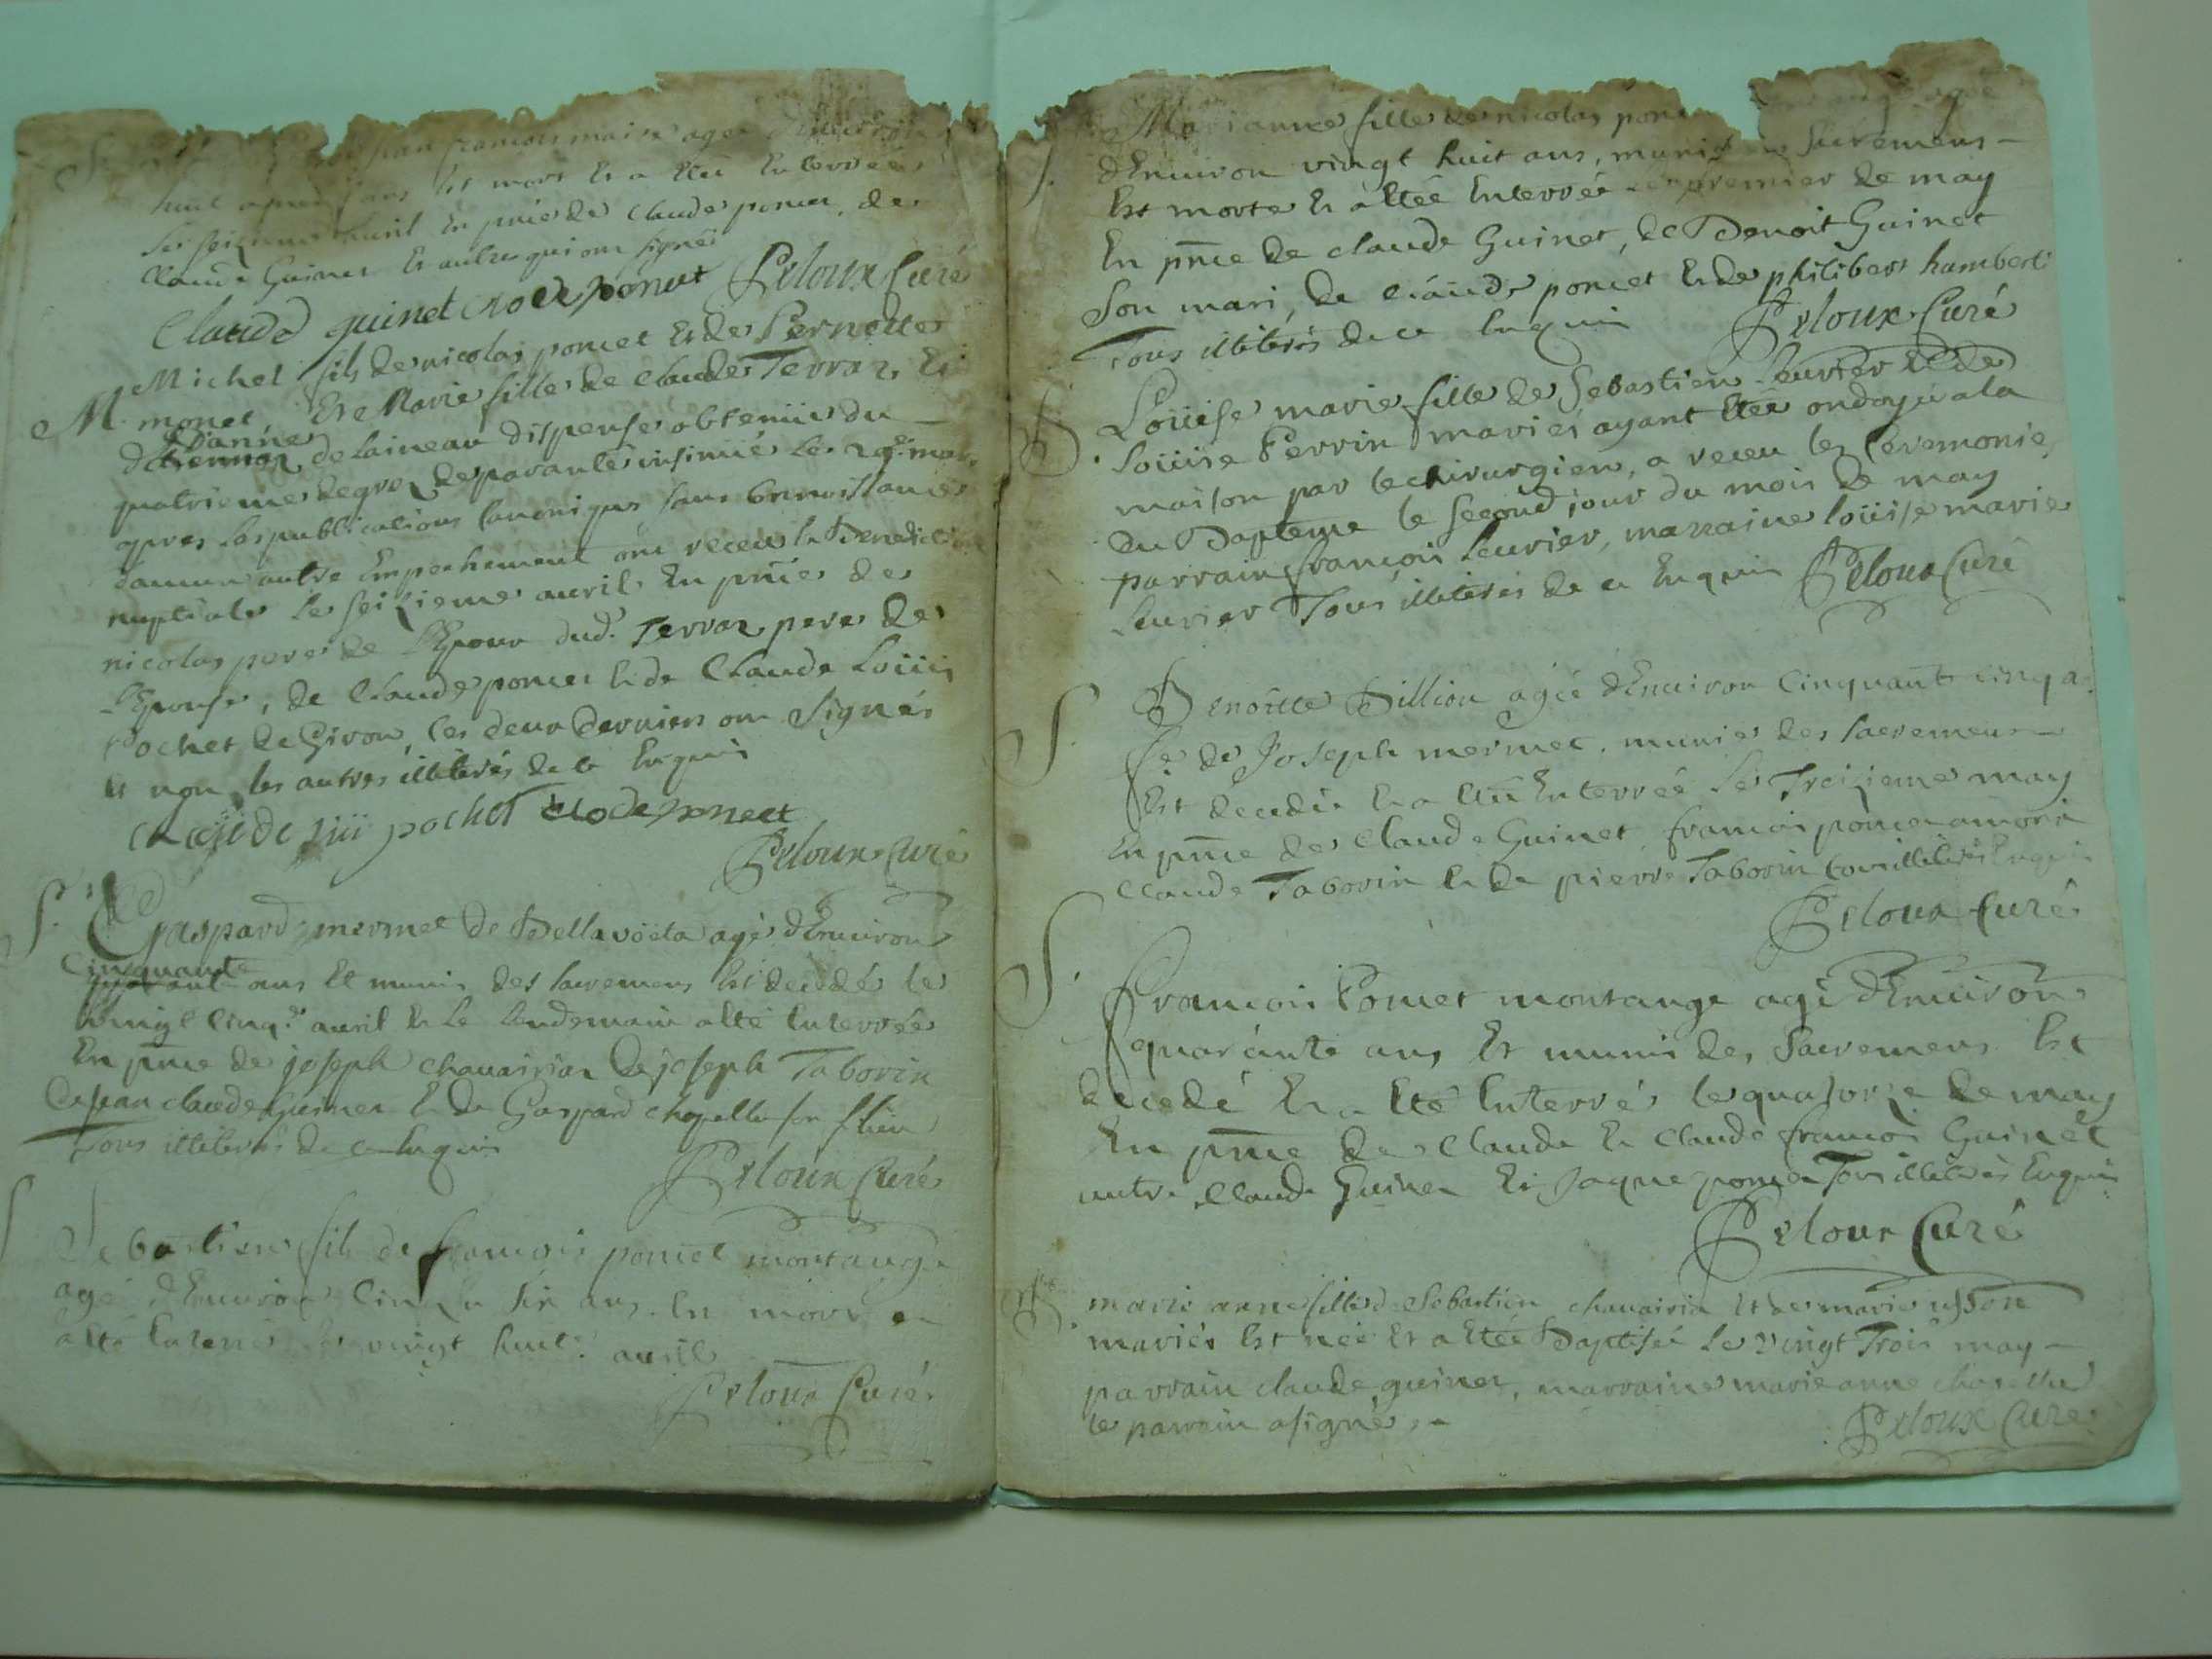 jean francois maire agé d'Environ
huit ans Est mort Et a Etée Enterrée
le avril En pñce de Claude poncet, de
Claude Guinet Et autres qui ont signés
Claude guinet clode poncet Peloux Curé
M. Michel fils de nicolas poncet Et de Pernette
monet Et Marie fille de Claude Terraz, Et
d'Etiennaz de laineau dispense obtenüe du
quatrieme degrez de parantés insinüé le mars
apres les publications canoniques sans
d'aucun autre Empechement ont receu la Benediction
nuptiale le seizieme auril En pñce de
nicolas pere de l'Epoux dud. Terraz pere de
l'Epouse, de Claude poncet Et de Claude Loüis
Pochet de Giron, les deux derniers ont signés
Et non les autres illiterés de ce Enquis
Claude Lüi pochet clode poncet
Peloux Curé
S. Gaspard mermet de Bellavoëta agé d'Enuiron
Cinquante
quarant ans Et munis des sacremens Est decedés le
vingt cinq.e auril Et le lendemain a Eté Enterrée
En pñce de joseph chauairiaz de joseph Taborin
de jean claude guinet Et de Gaspard chapellu son
Tous illiterés de ce Enquis
Peloux Curé
S Sebastien fils de francois poncet montange
agé d'Enuiron Cinq a six ans Est mort et
a Eté Enterré le vingt huit.e auril
Peloux Curé
S. Marianne fille de nicolas poncet agée
d'Enuiron vingt huit ans, munie des Sacremens
Est morte Et a Etée Enterrée le premier de may
En pñce de Claude Guinet, de Benoit Guinet
Son mari, de Claude poncet Et de philibert humbert
Tous illiterés de ce Enquis Peloux Curé
B. Loüise marie fille de Sebastien leurier Et de
loüise Perrin mariés ayant Etée ondoyée a la
maison par le chirurgien, a receu les Ceremonies
du Bapteme le second jour du mois de may
parrain françois leurier, marraine loüise marie
leurier Tous illiterés de ce Enquis Peloux Curé
S. Benoitte Billion agée d'Enuiron Cinquante cinq a.
fe de Joseph mermet, munie des sacremens
Est decedée Et a Etée Enterrée le Treizieme may
En pñce de Claude Guinet, francois poncet
Claude Taborin Et de pierre Taborin tous illiterés Enquis
Peloux Curé
S. francois Poncet montange agé d'Enuiron
quarante ans Et munis des Sacremens Est
decedé Et a Eté Enterrés le quatorze de may
En pñce de Claude Et Claude francois Guinet
autre Claude Guinet Et Jaque poncet Tous illiterés Enquis
Peloux Curé
B. marie anne fille de Sebastien chauairia Et de marie
mariés Est née Et a Etée Baptisée le vingt Trois may
parrain claude guinet, marraine marie anne chapellu
le parrain a signé.
Peloux Curé